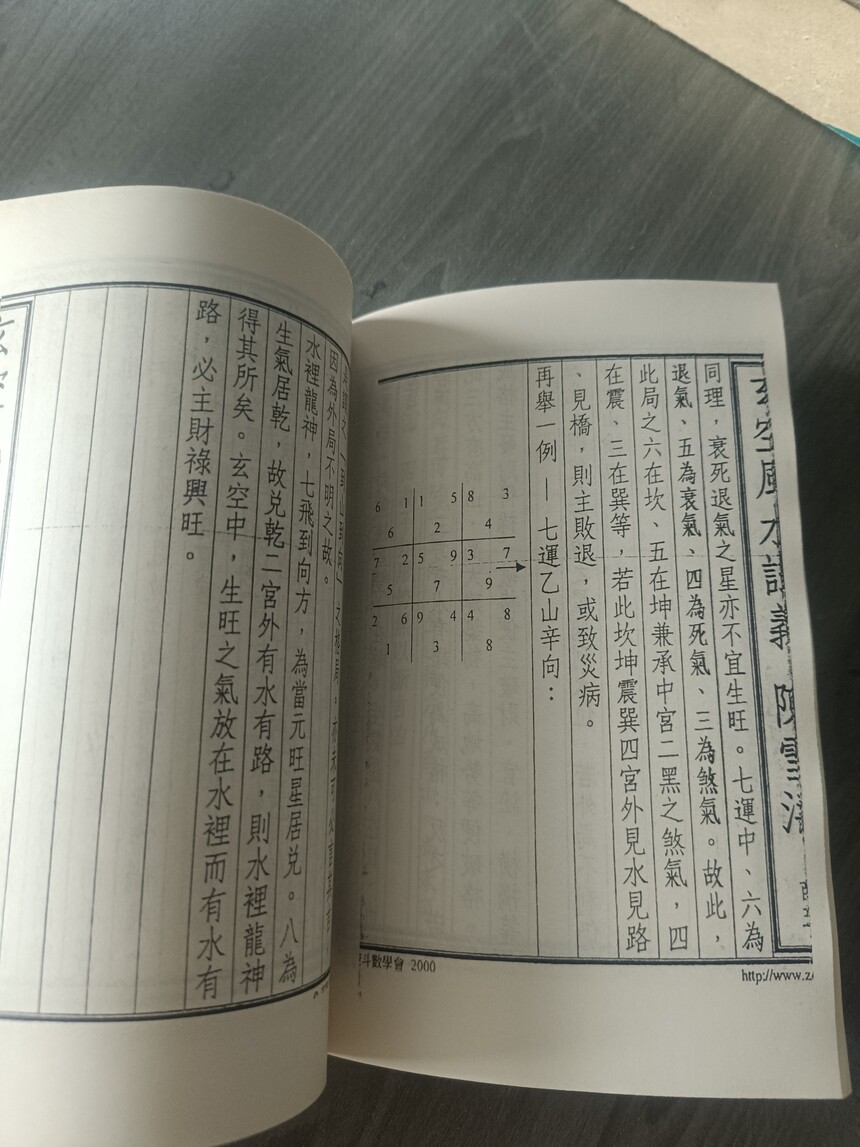 玄空風水講義 陳雪濤
同理，衰死退氣之星亦不宜生旺。七運中、六為
退氣、五為衰氣、四為死氣、三為煞氣。故此，
此局之六在坎、五在坤兼承中宮二黑之煞氣，四
在震、三在巽等，若此坎坤震巽四宮外見水見路
、見橋，則主敗退，或致災病。
再舉一例 — 七運乙山辛向：
6 1 1 5 8 3
6 2 4
7 2 5 9 3 7
5 7 9
2 6 9 4 4 8
1 3 8
斗數學會 2000
http://www.z
之「到山到向」之格局，
因為外局不明之故。
水裡龍神，七飛到向方，為當元旺星居兌。八為
生氣居乾，故兌乾二宮外有水有路，則水裡龍神
得其所矣。玄空中，生旺之氣放在水裡而有水有
路，必主財祿興旺。
玄空